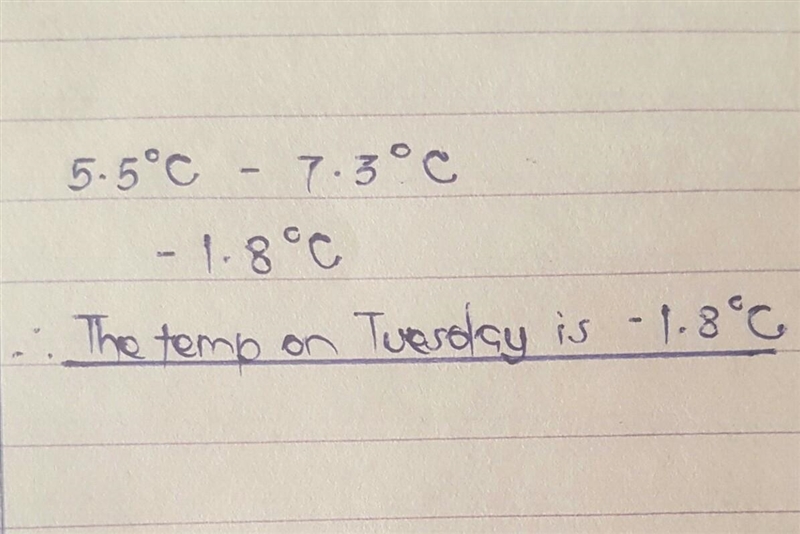 5.5°C - 7.3°C
- 1.8°C
∴ The temp on Tuesday is -1.8°C